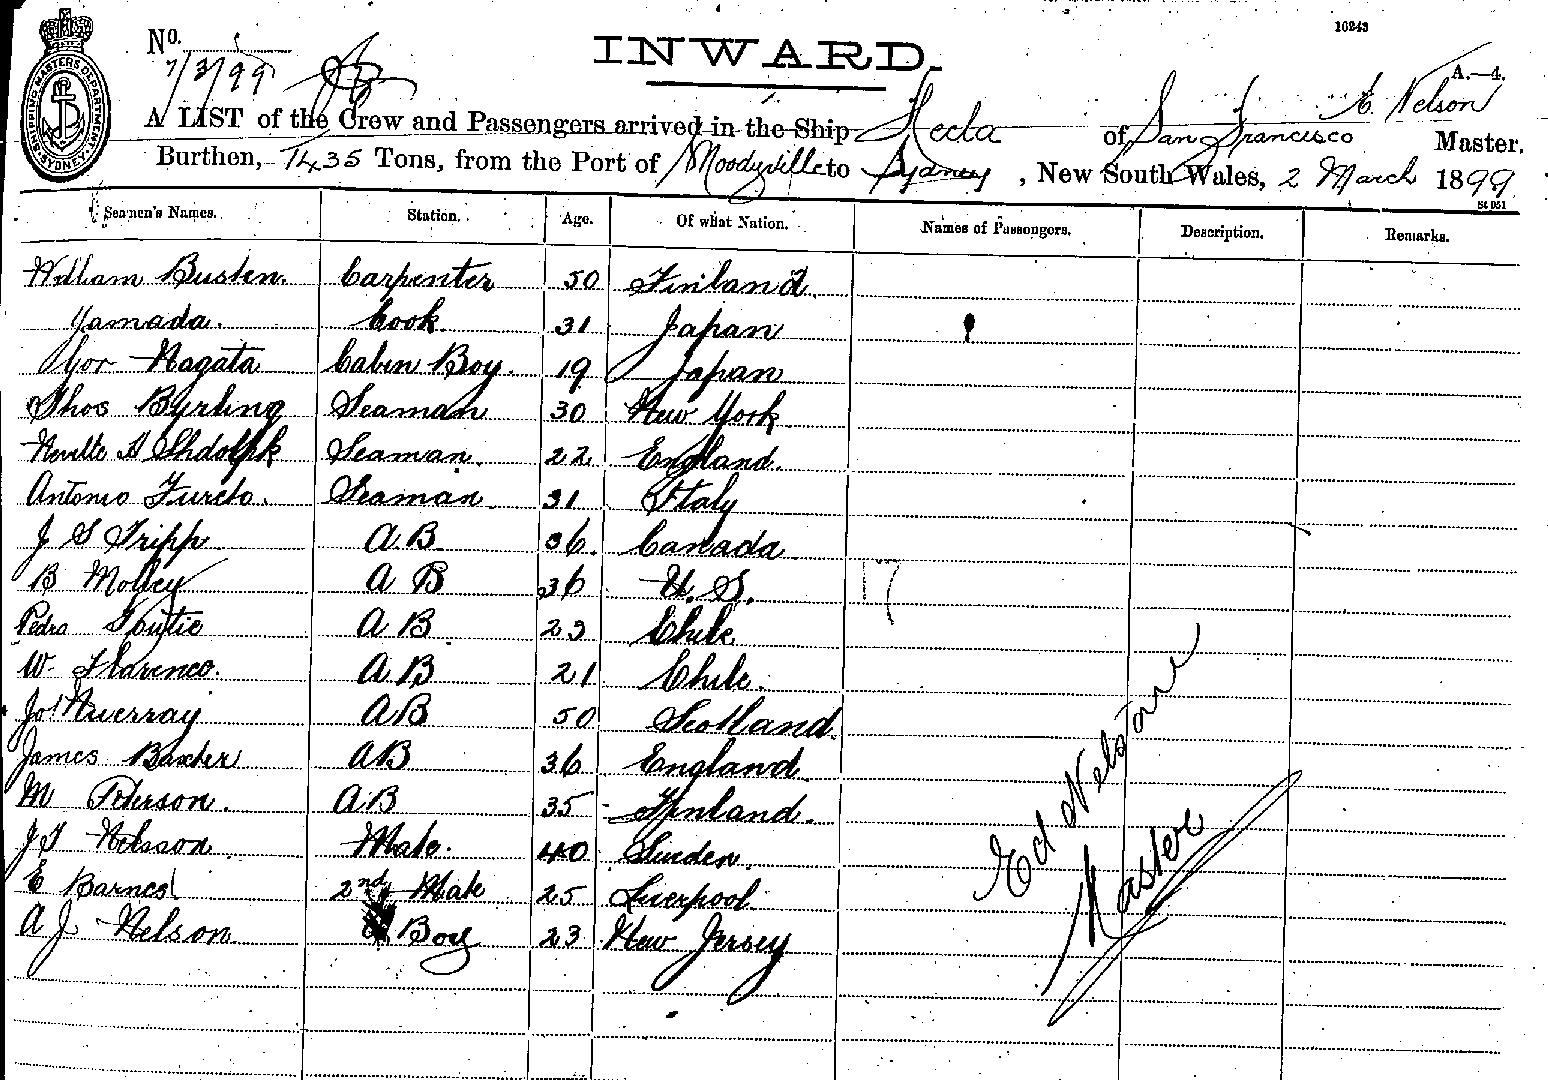 10243
No.
7/3/99
INWARD.
A.—4.
E. Nelson
A LIST of the Crew and Passengers arrived in the Ship Hecla of San Francisco Master.
Burthen, 1435 Tons, from the Port of Moodyville to Sydney, New South Wales, 2 March 1899
St 051
SHIPPING MASTERS DEPARTMENT. SYDNEY.
Seamen's Names. Station. Age. Of what Nation. Names of Passengers. Description. Remarks.
William Busten. Carpenter 50 Finland.
Yamada. Cook 31 Japan
Nagata Cabin Boy. 19 Japan
Thos Byrling Seaman 30 New York.
Neville A Seaman. 22 England.
Antonio Seaman. 31 Italy
J S Tripp A.B. 36. Canada.
B A B 36 U. S.
Pedro A B. 23 Chile
W. A B 21 Chile.
Jos Murray A B 50 Scotland.
James Baxter A B 36 England.
M Peterson. A B 35 Finland.
J T Nelsson. Mate. 40 Sweden.
E Barnes 2nd Mate 25 Liverpool.
A J Nelson Boy 23 New Jersey
Ed Nelson
Master